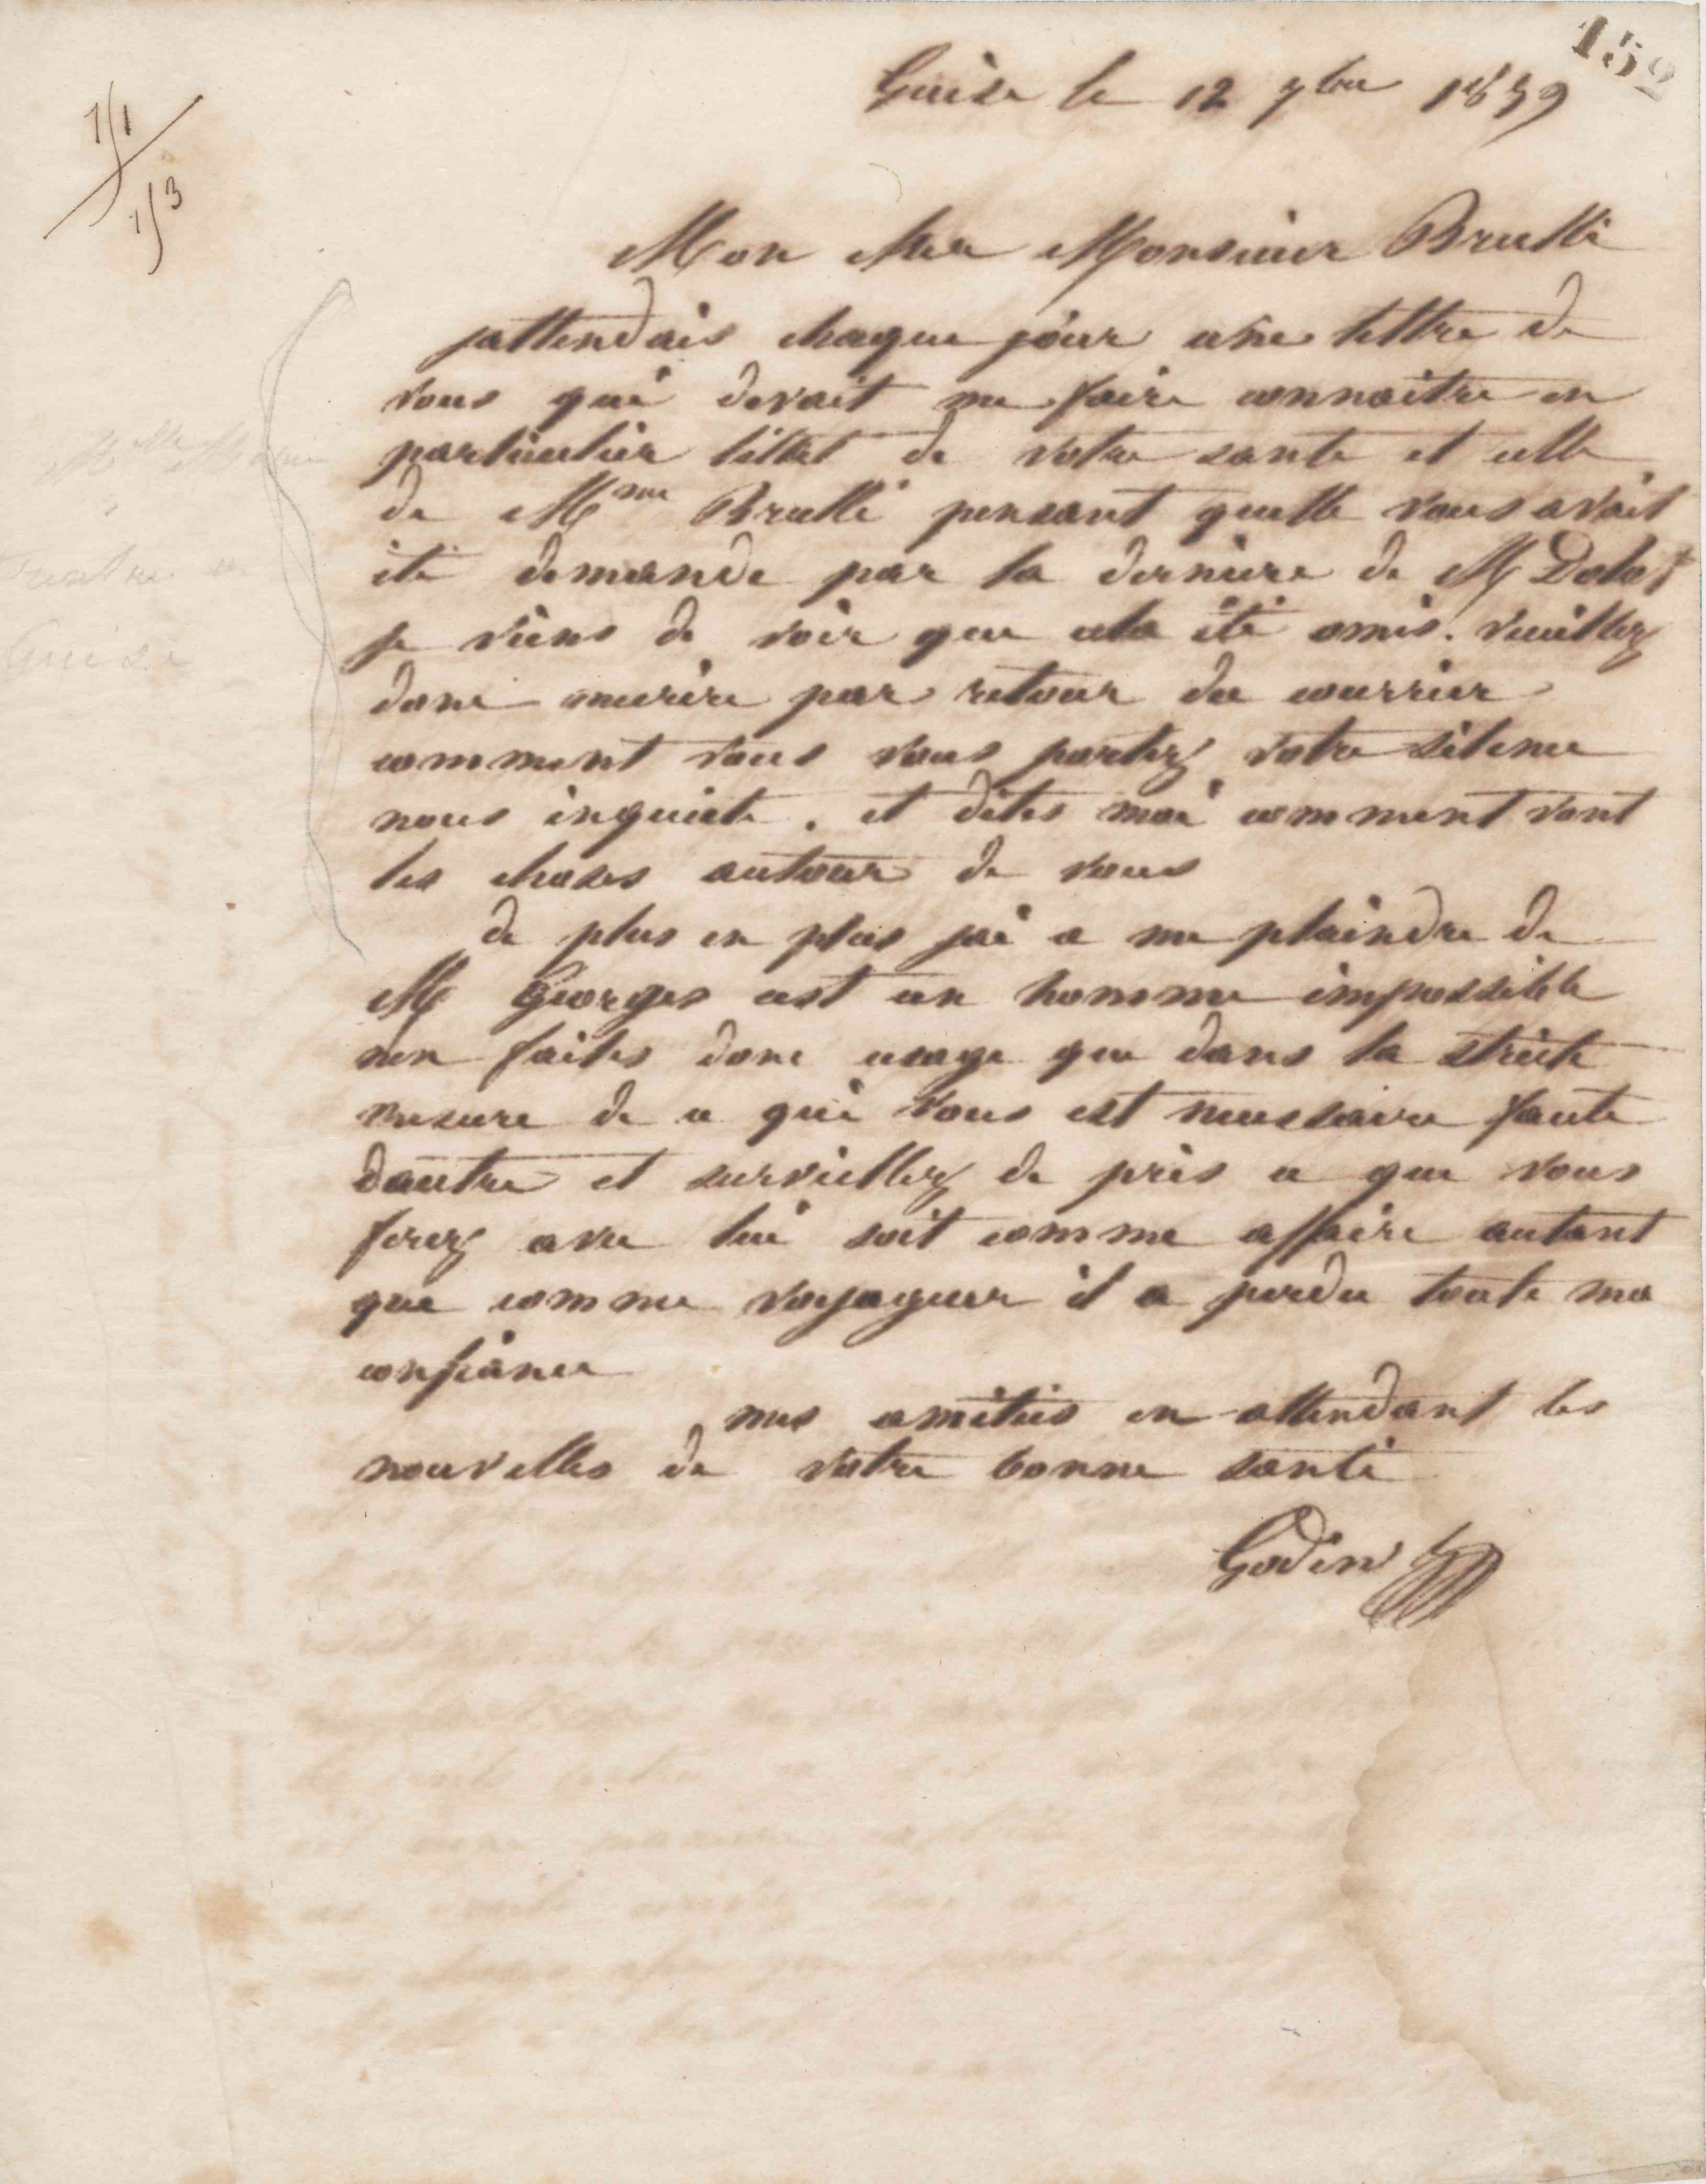 152
Guise le 12 7bre 1859
1/1
1/3
Mon cher Monsieur Brullé
jattendais chaque jour une lettre de
vous qui devait me faire connaitre en
particulier létat de votre santé et celle
de Mme Brullé pensant quelle vous avait
été demandé par la derniere de M Dolot
je viens de voir que cela été omis. Veuillez
donc mecrire par retour du courrier
comment vous vous portez votre silence
nous inquiete. et dites moi comment vont
les choses autour de vous
de plus en plus jai a me plaindre de
M Georges cest un homme impossible
nen faites donc usage que dans la stricte
mesure de ce qui vous est necessaire faute
dautre et surveillez de près ce que vous
ferez avec lui soit comme affaire autant
que comme voyageur il a perdu toute ma
confiance
mes amitiés en attendant les
nouvelles de votre bonne santé
Godin
Guise